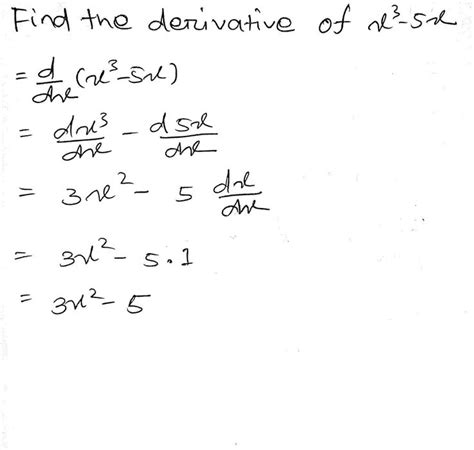 Find the derivative of x³-5x
= d/dx (x³-5x)
= dx³/dx - d5x/dx
= 3x² - 5 dx/dx
= 3x² - 5.1
= 3x² - 5